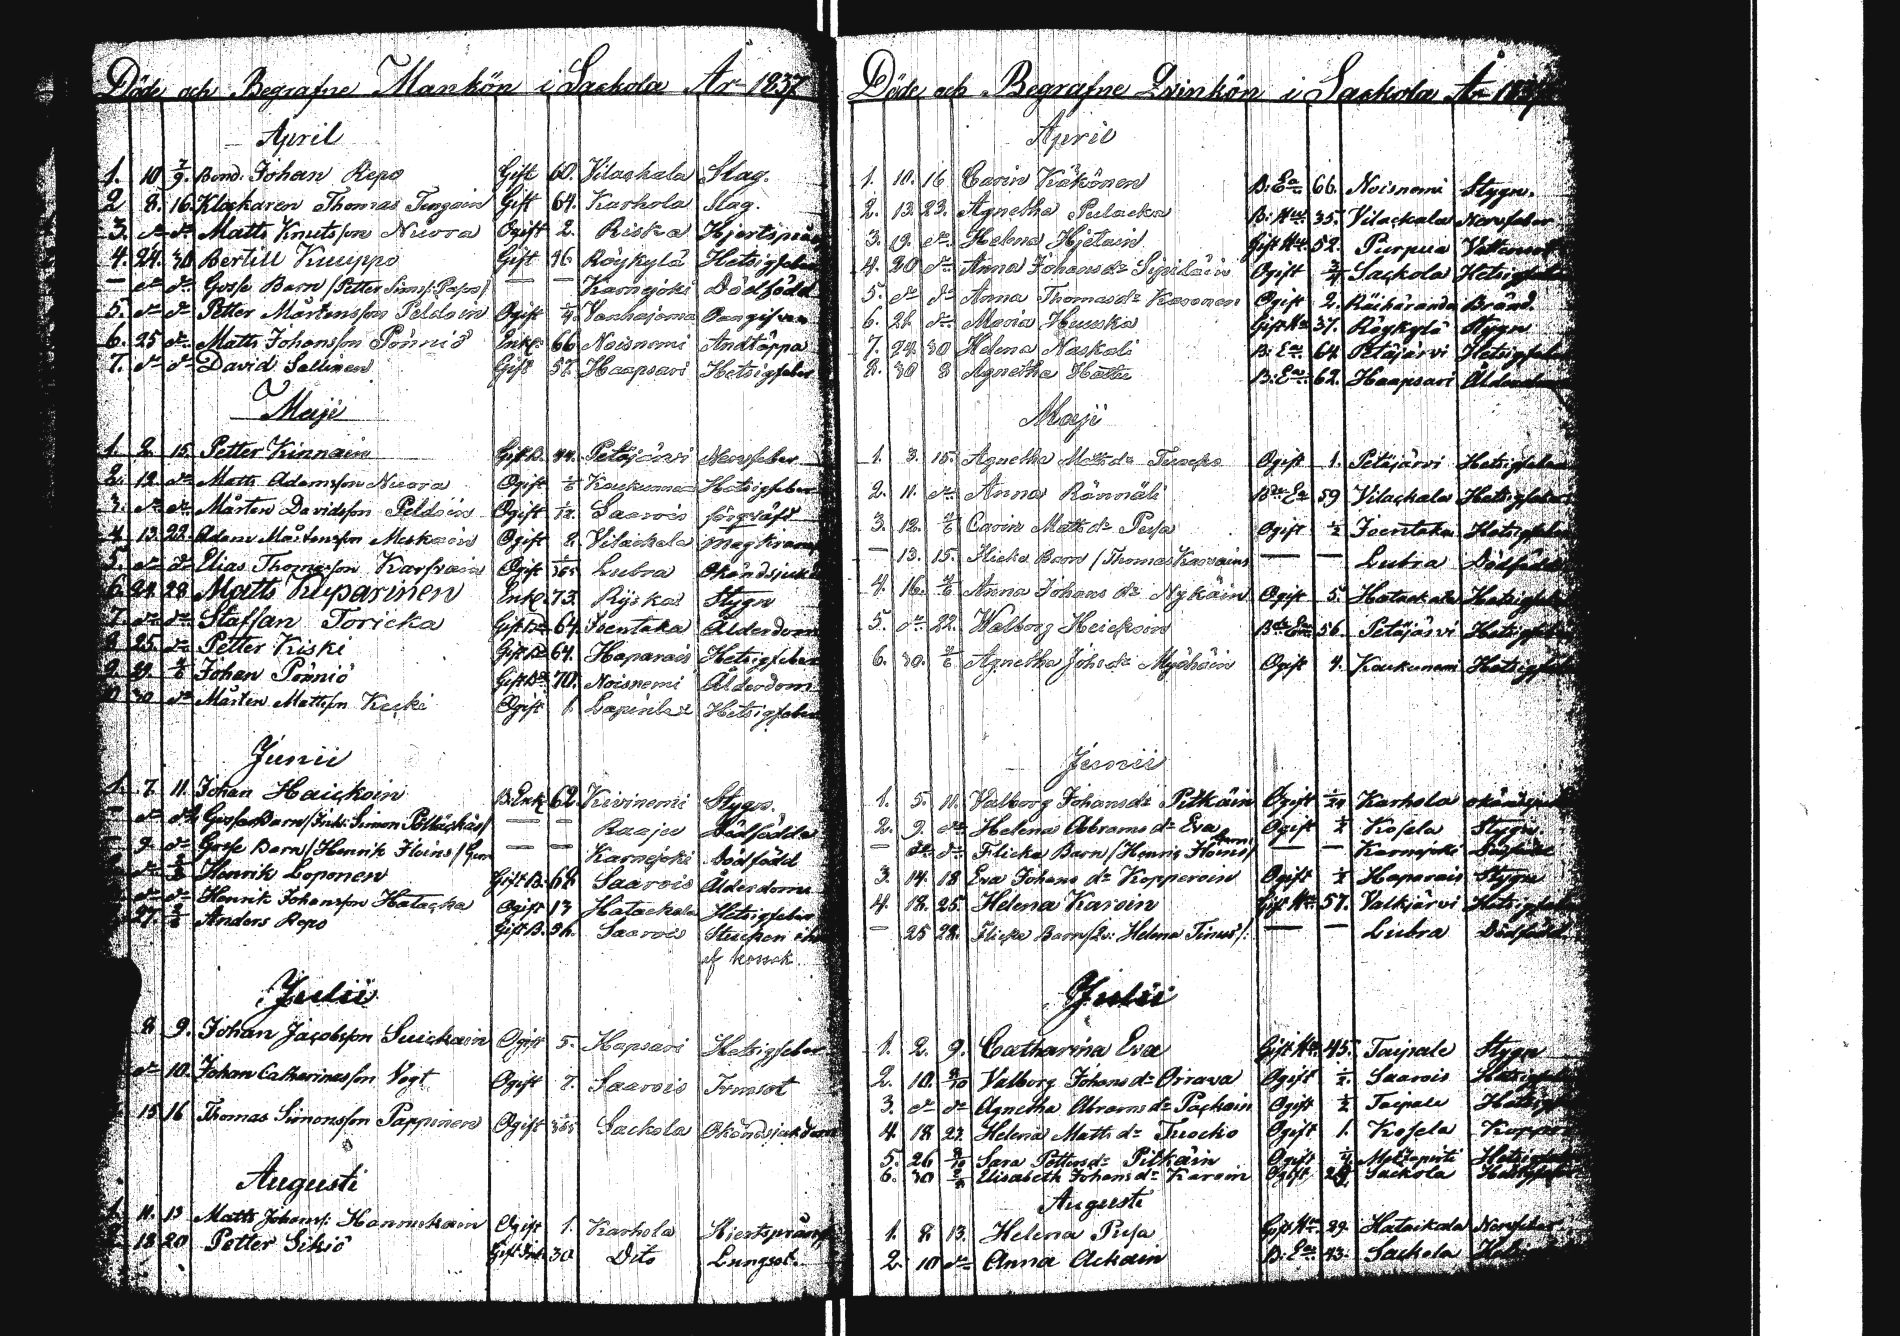 Döde och Begrafne Mankön i Sackola År 1837
April
1. 10 7/9. Bond. Johan Repo Gift 60. Vilackala Slag.
2 8. 16. Klockaren Thomas Gift 64. Karhola Slag.
3. do do Matts Knutsson Nuora Ogift 2. Riska
4. 24. 30 Bertill Kuuppo Gift 46 Röykylä Hetsigfeber
— do do Gosse Barn /Petter Simons: / — — Karnejoki Dödfödd
5. do do Petter Mårtensson Peldoin Ogift Vanhajama
6. 25 do Matts Johansson Pönniö Enkl. 66 Noisnemi Andtäppa
7. do do David Sallinen Gift 57. Haapsari Hetsigfeber
Maji
1. 2. 15. Petter Kinnain Gift B. 44. Petäjärvi Nervfeber
2. 12 do Matts Adamsson Nuora Ogift Kaukunemi Hetsigfeber
3. do do Mårten Davidsson Peldoin Ogift 1/12. Saarois
4. 13. 22. Adam Mårtensson Ogift 2. Vilackala Magkramp
5. do do Elias Thomasson Karfvain Ogift 1/365 Lubra Okändsjukd
6. 24. 28 Matts Kuparinen Enkl. 73. Rijska Stygn
7. do do Staffan Toricka Gift Bd 64. Isentaka Ålderdom
8 25. do Petter Kiski Gift B 64. Haparais Hetsigfeber
9. 29. 4/6 Johan Pönniö Gift Bd 70. Noisnemi Ålderdom
10 30 do Mårten Mattsson Kecki Ogift 1. Hetsigfeber
Junii
1. 7. 11. Johan Haickoin B. Enkl 62. Kivinemi Stygn.
— do do Gosse Barn/Ink: Simon / — — Raaju Dödfödde
— 9. do Gosse Barn/Henrik Floins / — — Karnejoki Dödfödd
do Henrik Loponen Gift B. 68 Saarois Ålderdom
do do Henrik Johansson Hatacka Ogift 13 Hatackala Hetsigfeber
27. Anders Repo Gift B. Saarois
Julii
8 9. Johan Jacobsson Suickain Ogift 5. Hapsari Hetsigfeber
do 10. Johan Catharinasson Vogt Ogift 7. Saarois
15 16 Thomas Simonsson Pappinen Ogift Sackola Okändsjukdom
Augusti
1. 11. 13 Matts Johans: Hannukain Ogift 1. Karhola
18 20 Petter Sikiö Gift 30 Dito Lungsot.
Döde och Begrafne Qvinkön i Sackola År 1837
April
1. 10. 16 Carin Käkönen B: Ea 66. Noisnemi Stygn.
2. 13. 23. Agnetha Pulacka B: Hu 35. Vilackala Nervfeber
3. 19. do Helena Hjetain Gift Hu. 52. Purpua
4. 20 do Anna Johans dr Sipiläin Ogift Sackola Hetsigfeber
5. do do Anna Thomas dr Karonen Ogift 2. Räihäranda Bränd.
6. 21. do Maria Huuska Gift Hu 37. Röykylä Stygn
7. 24. 30 Helena Naskali B: Ea 64. Petäjärvi Hetsigfeber
8. 30 8 Agnetha Hatti B: Ea 62. Haapsari Ålderdom
Maji
1. 3. 15. Agnetha Matts dr Tuocko Ogift 1. Petäjärvi Hetsigfeber
2. 11. do Anna Rännäli Bde Ea 59 Vilackala Hetsigfeber
3. 12. 4/6 Carin Matts dr Pusa Ogift 1/2 Isentaka Hetsigfeber
— 13. 15. Flicke Barn /Thomas Karvains — — Lubra Dödfödd
4. 16. 4/6 Anna Johans dr Nykäin Ogift 5. Hatackala Hetsigfeber
5. do 22. Walborg Heickoin Bde Ea 56. Petäjärvi Hetsigfeber
6. 30. 4/6 Agnetha Johs dr Myöhöin Ogift 4. Kaukunemi Hetsigfeber
Junii
1. 5. 11. Valborg Johans dr Pitkäin Ogift 1/24 Karhola
2. 9. do Helena Abrams dr Eva Ogift 1/2 Kosela Stygn.
— do do Flicka Barn /Henric Floins/ — — Karnejoki Dödfödd
3. 14. 18 Eva Johans dr Kopperoin Ogift 1/2 Haparais Stygn
4. 18. 25. Helena Karoin Gift Hu 57. Valkjärvi Hetsigfeber
— 25 28. Flicka Barn/Qv: Helena Tinus/: — — Lubra Dödfödd
Julii
1. 2. 9. Catharina Eva Gift Hu. 45. Taipale Stygn
2. 10. 8/10 Valborg Johans dr Orrava Ogift 1/2. Saarois Hetsigfeber
3. do do Agnetha Abrams dr Päckain Ogift 1/2 Taipale Hetsigfeber
4. 18 23. Helena Matts dr Tuocko Ogift 1. Kosela Koppor
5. 26 8/10 Sara Petters dr Pitkäin Ogift Hetsigfeber
6. 30 Elisabeth Johans dr Karoin Ogift Sackola Hetsigfeber
Augusti
1. 8 13. Helena Pusa Gift Hu 29. Hatackala Nervfeber
2. 10 do Anna Ackain B: Ea 43. Sackola